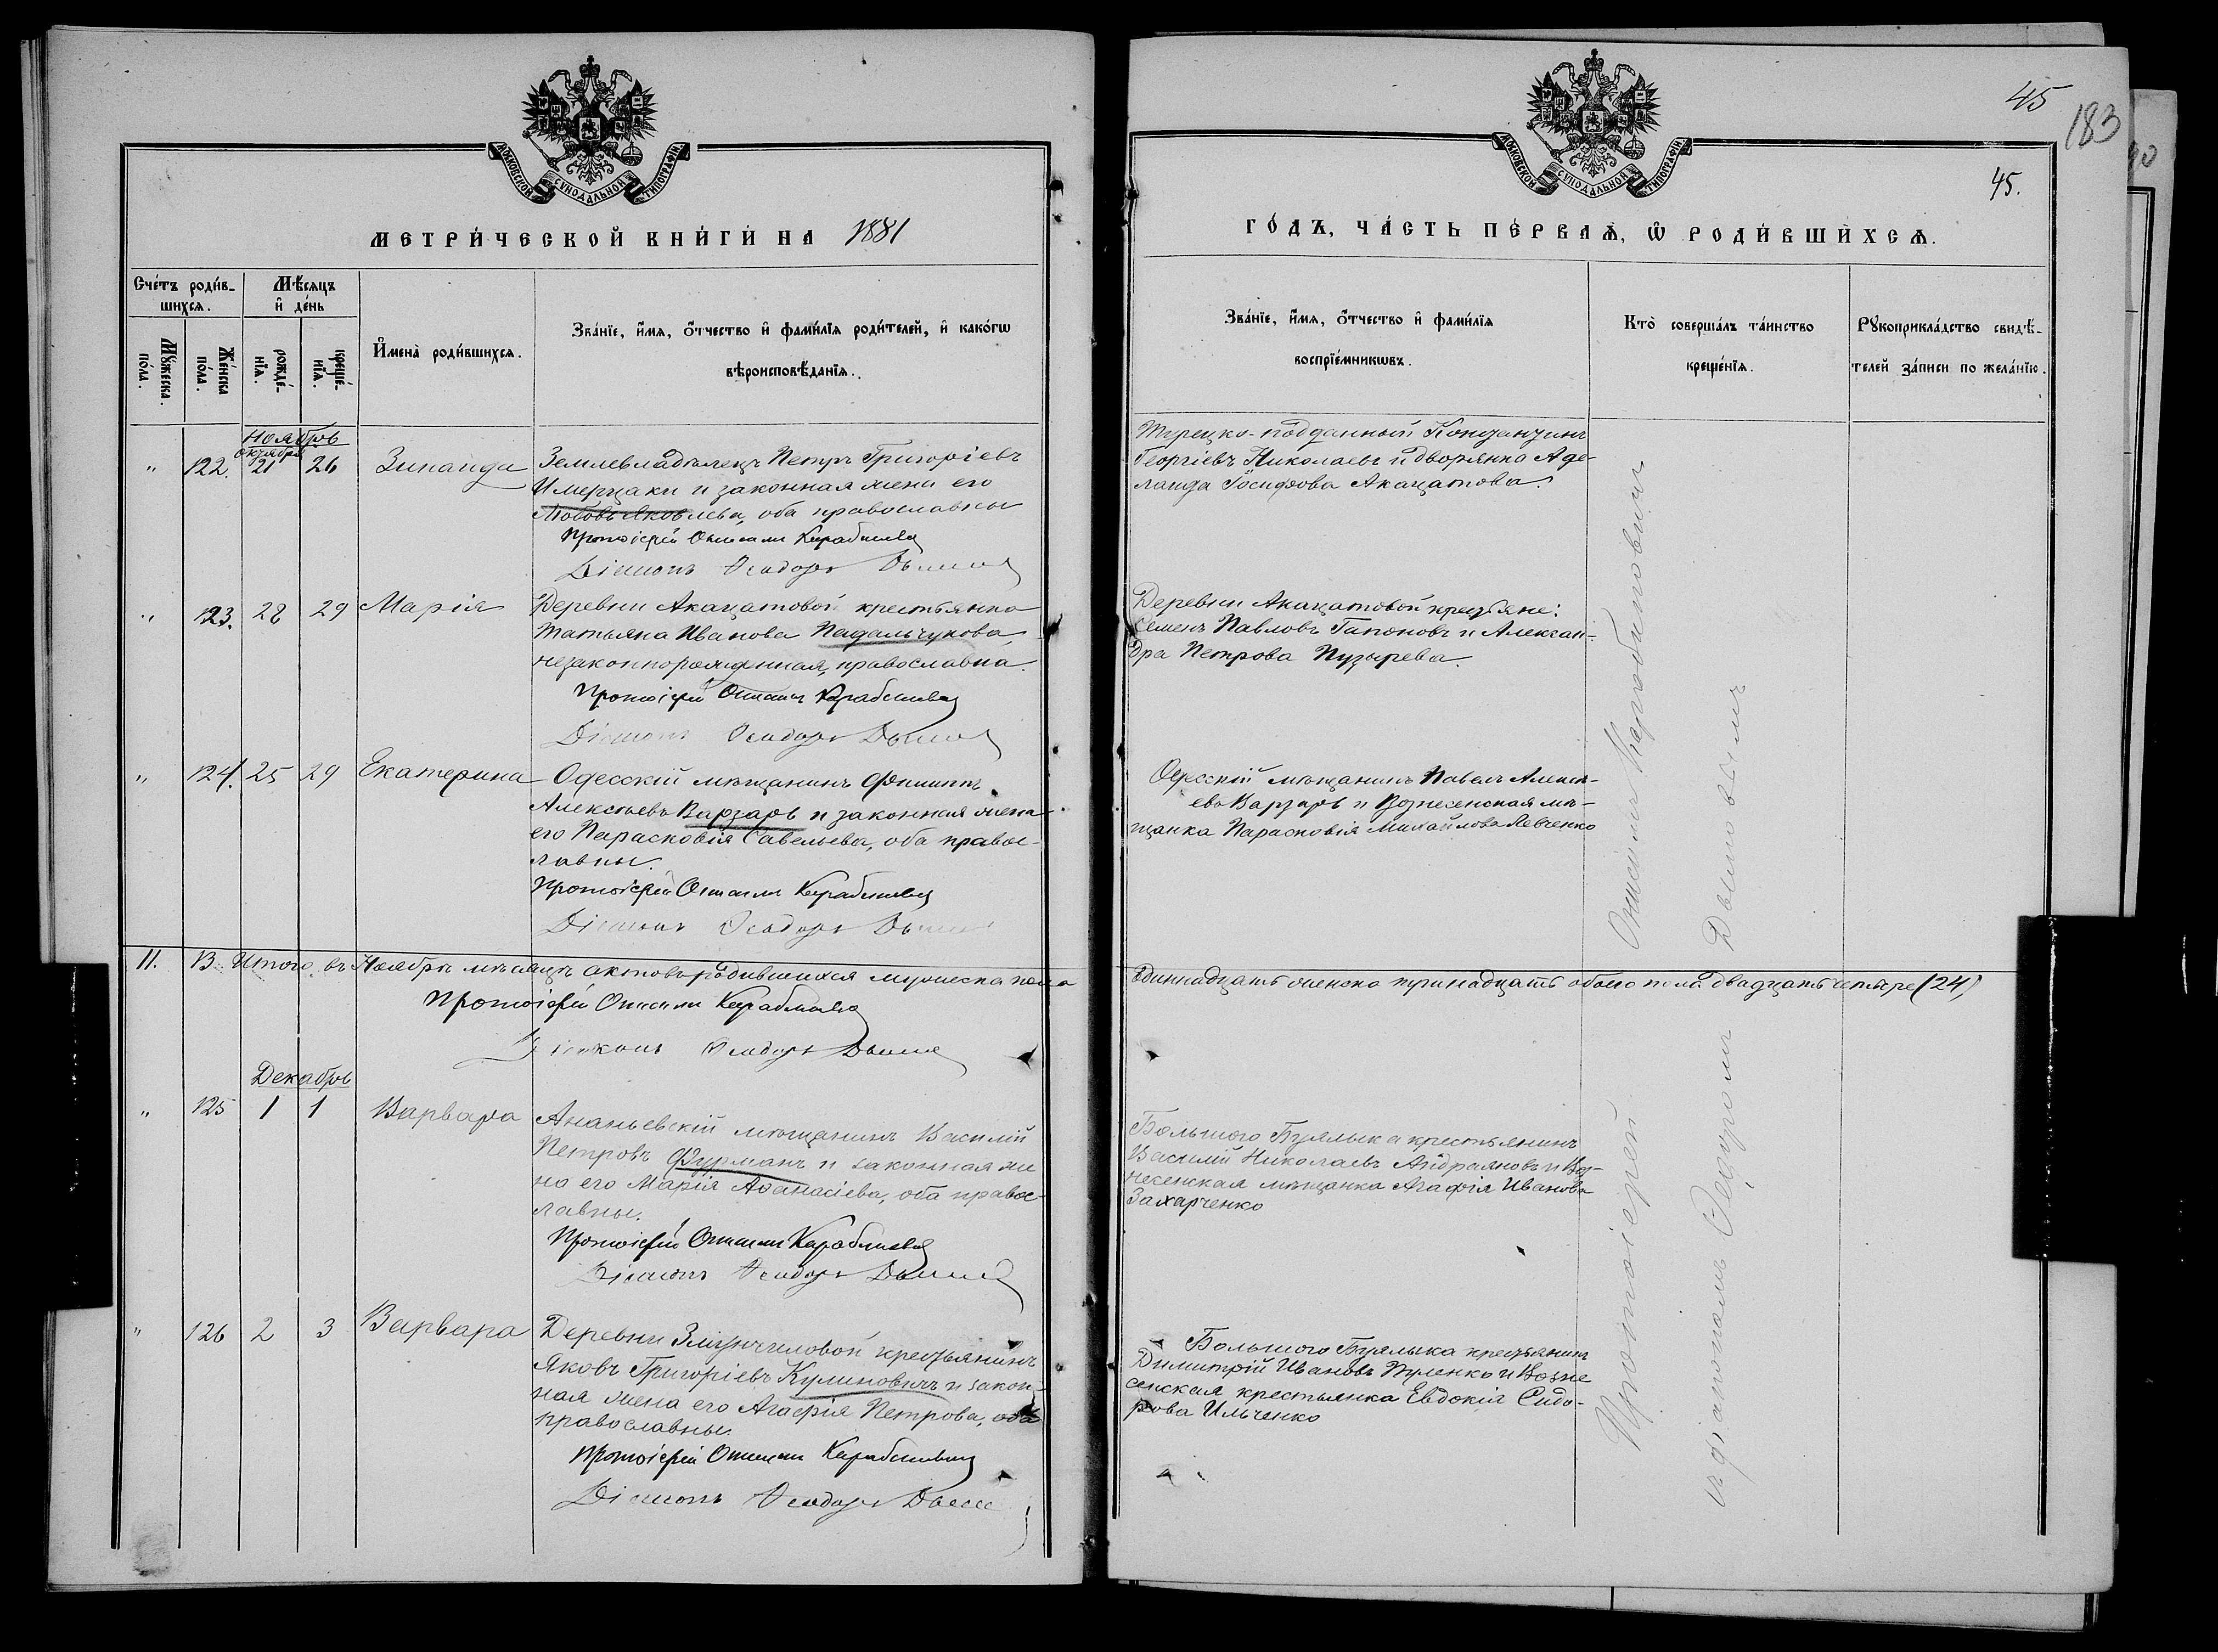 МОСКОВСКОЙ СѴНОДАЛЬНОЙ ТИПОГРАФІИ
МЕТРИ́ЧЕСКОЙ КНИ́ГИ НА 1881
Сче́тъ роди́в-
шихся.
Мѣ́сяцъ
и҆ де́нь
Мꙋ́жеска
по́ла.
Же́нска
по́ла.
рожде́-
нїѧ.
креще́-
нїѧ.
И҆мена̀ роди́вшихсѧ.
Зва́нїе, и҆́мѧ, ѻ҆́тчество и҆ фами́лїѧ роди́телей, и҆ како́гѡ
вѣроисповѣ́данїѧ.
Ноябрь
октября
" 122. 21 26 Зинаида
Землевладѣлецъ Петръ Григоріевъ
Имерцаки и законная жена его
Любовь Яковлева, оба православны
Протоіерей Онисимъ
Діаконъ Ѳеодоръ
" 123. 28 29 Марія
Деревни Акацатовой крестьянка
Татьяна Иванова Падальчукова,
незаконнорожденная, православна.
Протоіерей Онисимъ
Діаконъ Ѳеодоръ
" 124. 25 29 Екатерина
Одесскій мѣщанинъ Филиппъ
Алексѣевъ Варзарь и законная жена
его Парасковія Савельева, оба правос-
лавны.
Протоіерей Онисимъ
Діаконъ Ѳеодоръ
11. 13 Итого въ Ноябрѣ мѣсяцѣ актовъ родившихся мужеска пола
Протоіерей Онисимъ
Діаконъ Ѳеодоръ
Декабрь
" 125 1 1 Варвара
Ананьевскій мѣщанинъ Василій
Петровъ Фурманъ и законная же
на его Марія Аѳанасіева, оба правос-
лавны.
Протоіерей Онисимъ
Діаконъ Ѳеодоръ
" 126 2 3 Варвара
Деревни крестьянинъ
Яковъ Григоріевъ Кулиновичъ и закон-
ная жена его Агафія Петрова, оба
православны.
Протоіерей Онисимъ
Діаконъ Ѳеодоръ
45
183
90
МОСКОВСКОЙ СѴНОДАЛЬНОЙ ТИПОГРАФІИ
45.
ГО́ДЪ, ЧА́СТЬ ПЕ́РВАѦ, Ѡ҆ РОДИ́ВШИХСѦ.
Зва́нїе, и҆́мѧ, ѻ҆́тчество и҆ фами́лїѧ
воспрїе́мникѡвъ.
Кто̀ соверша́лъ та́инство
креще́нїѧ.
Рꙋкоприкла́дство свидѣ́-
телей за́писи по жела́нїю.
Турецко-подданный Константинъ
Георгіевъ Николаевъ и дворянка Аде-
лаида Іосифова Акацатова.
Деревни Акацатовой крестьяне:
Семенъ Павловъ Гапоновъ и Алексан-
дра Петрова Пузырева.
Одесскій мѣщанинъ Павелъ Алексѣ-
евъ Варзарь и Вознесенская мѣ-
щанка Парасковія Михайлова Левченко
Одиннадцать женска тринадцать обоего пола двадцать четыре (24)
Большого Буялыка крестьянинъ
Василій Николаевъ Андреяновъ и Воз-
несенская мѣщанка Агафія Иванова
Захарченко
Большого Буялыка крестьянинъ
Димитрій Ивановъ Туленко и Возне
сенская крестьянка Евдокія Сидо-
рова Ильченко
Протоіерей Онисимъ Кораблиновичъ
съ діакономъ Ѳеодоромъ